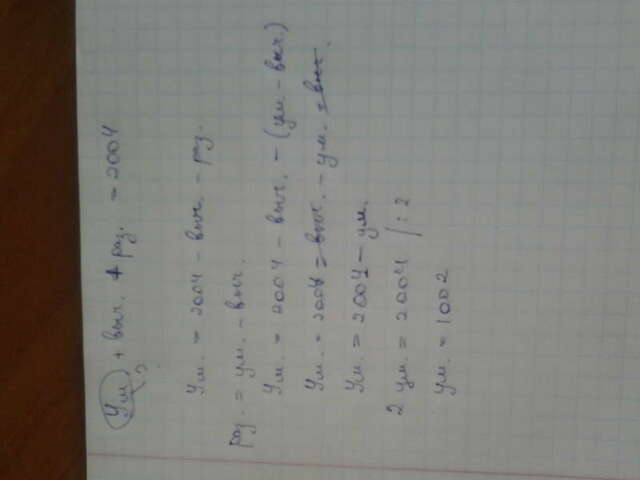 Ум. + выч. + раз. = 2004
?
Ум. = 2004 - выч. - раз.
раз. = ум. - выч.
Ум. = 2004 - выч. - (ум. - выч.)
Ум. = 2004 - выч. - ум. + выч.
Ум. = 2004 - ум.
2 ум. = 2004 / : 2
ум. = 1002